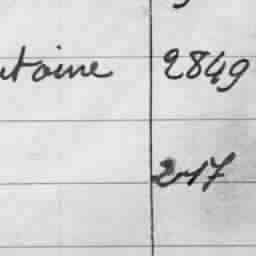 ntoine 2849
217